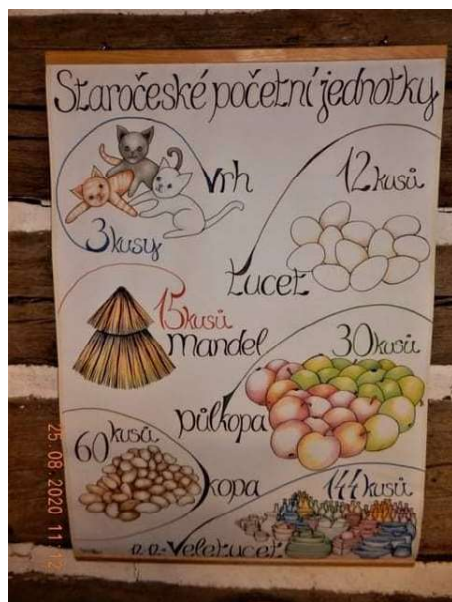 Staročeské početní jednotky
vrh
3 kusy
12 kusů
tucet
15 kusů
Mandel
30 kusů
půlkopa
60 kusů
kopa
144 kusů
Veletucet
25 08 2020 11:12